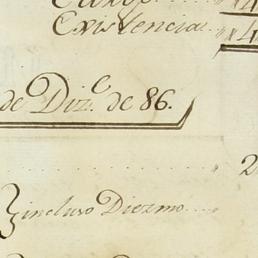 Existencia
de Diz.e de 86.
2
incluso Diezmo